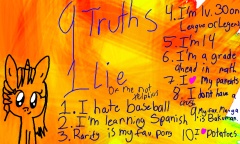 9 Truths
1 Lie
1. I hate baseball
2. I'm learning Spanish
3. Rarity is my fav. pony
4. I'm lv. 30 on
League of Legends
5. I'm 14
6. I'm a grade
ahead in math
7. I my parents
8. I don't have a
9. My fav. Manga
is Bakuman.
10. I Potatoes